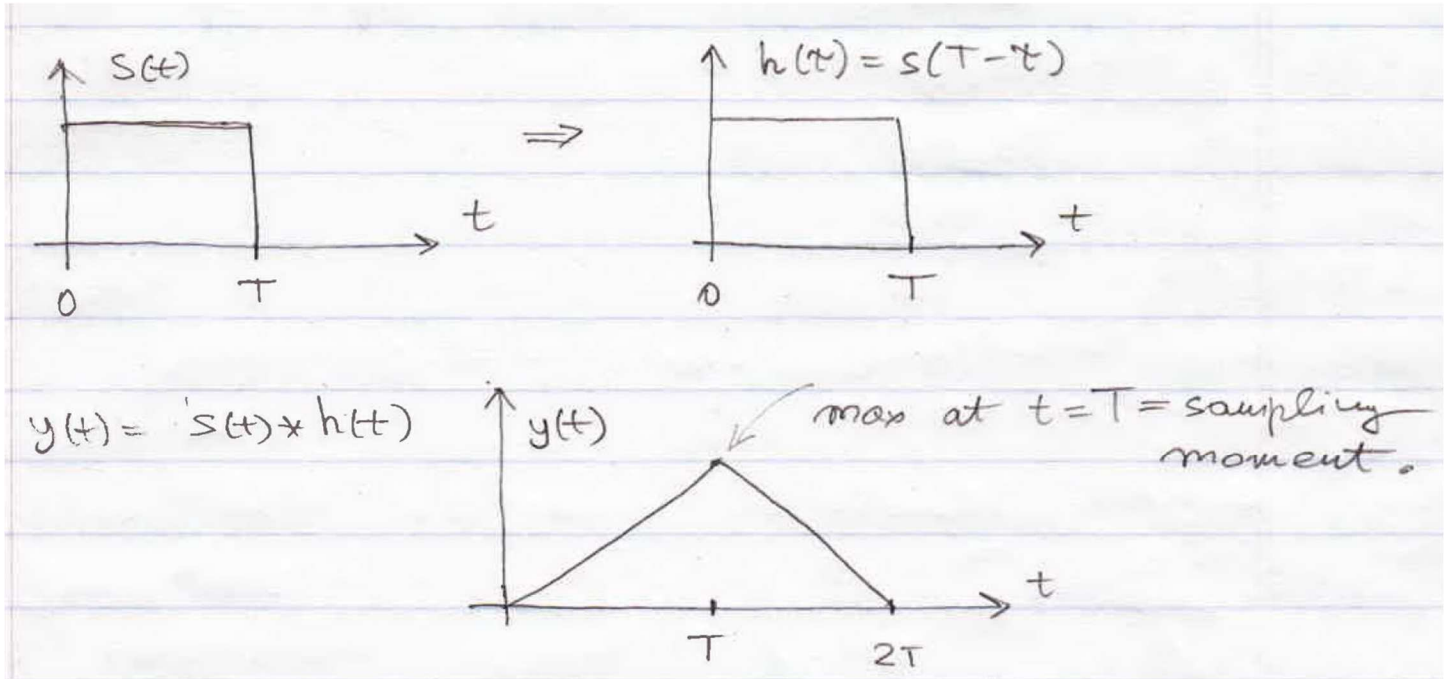 s(t)
h(τ) = s(T-τ)
⇒
t
t
0
T
0
T
y(t) = s(t) * h(t)
y(t)
max at t = T = sampling
moment.
t
T
2T